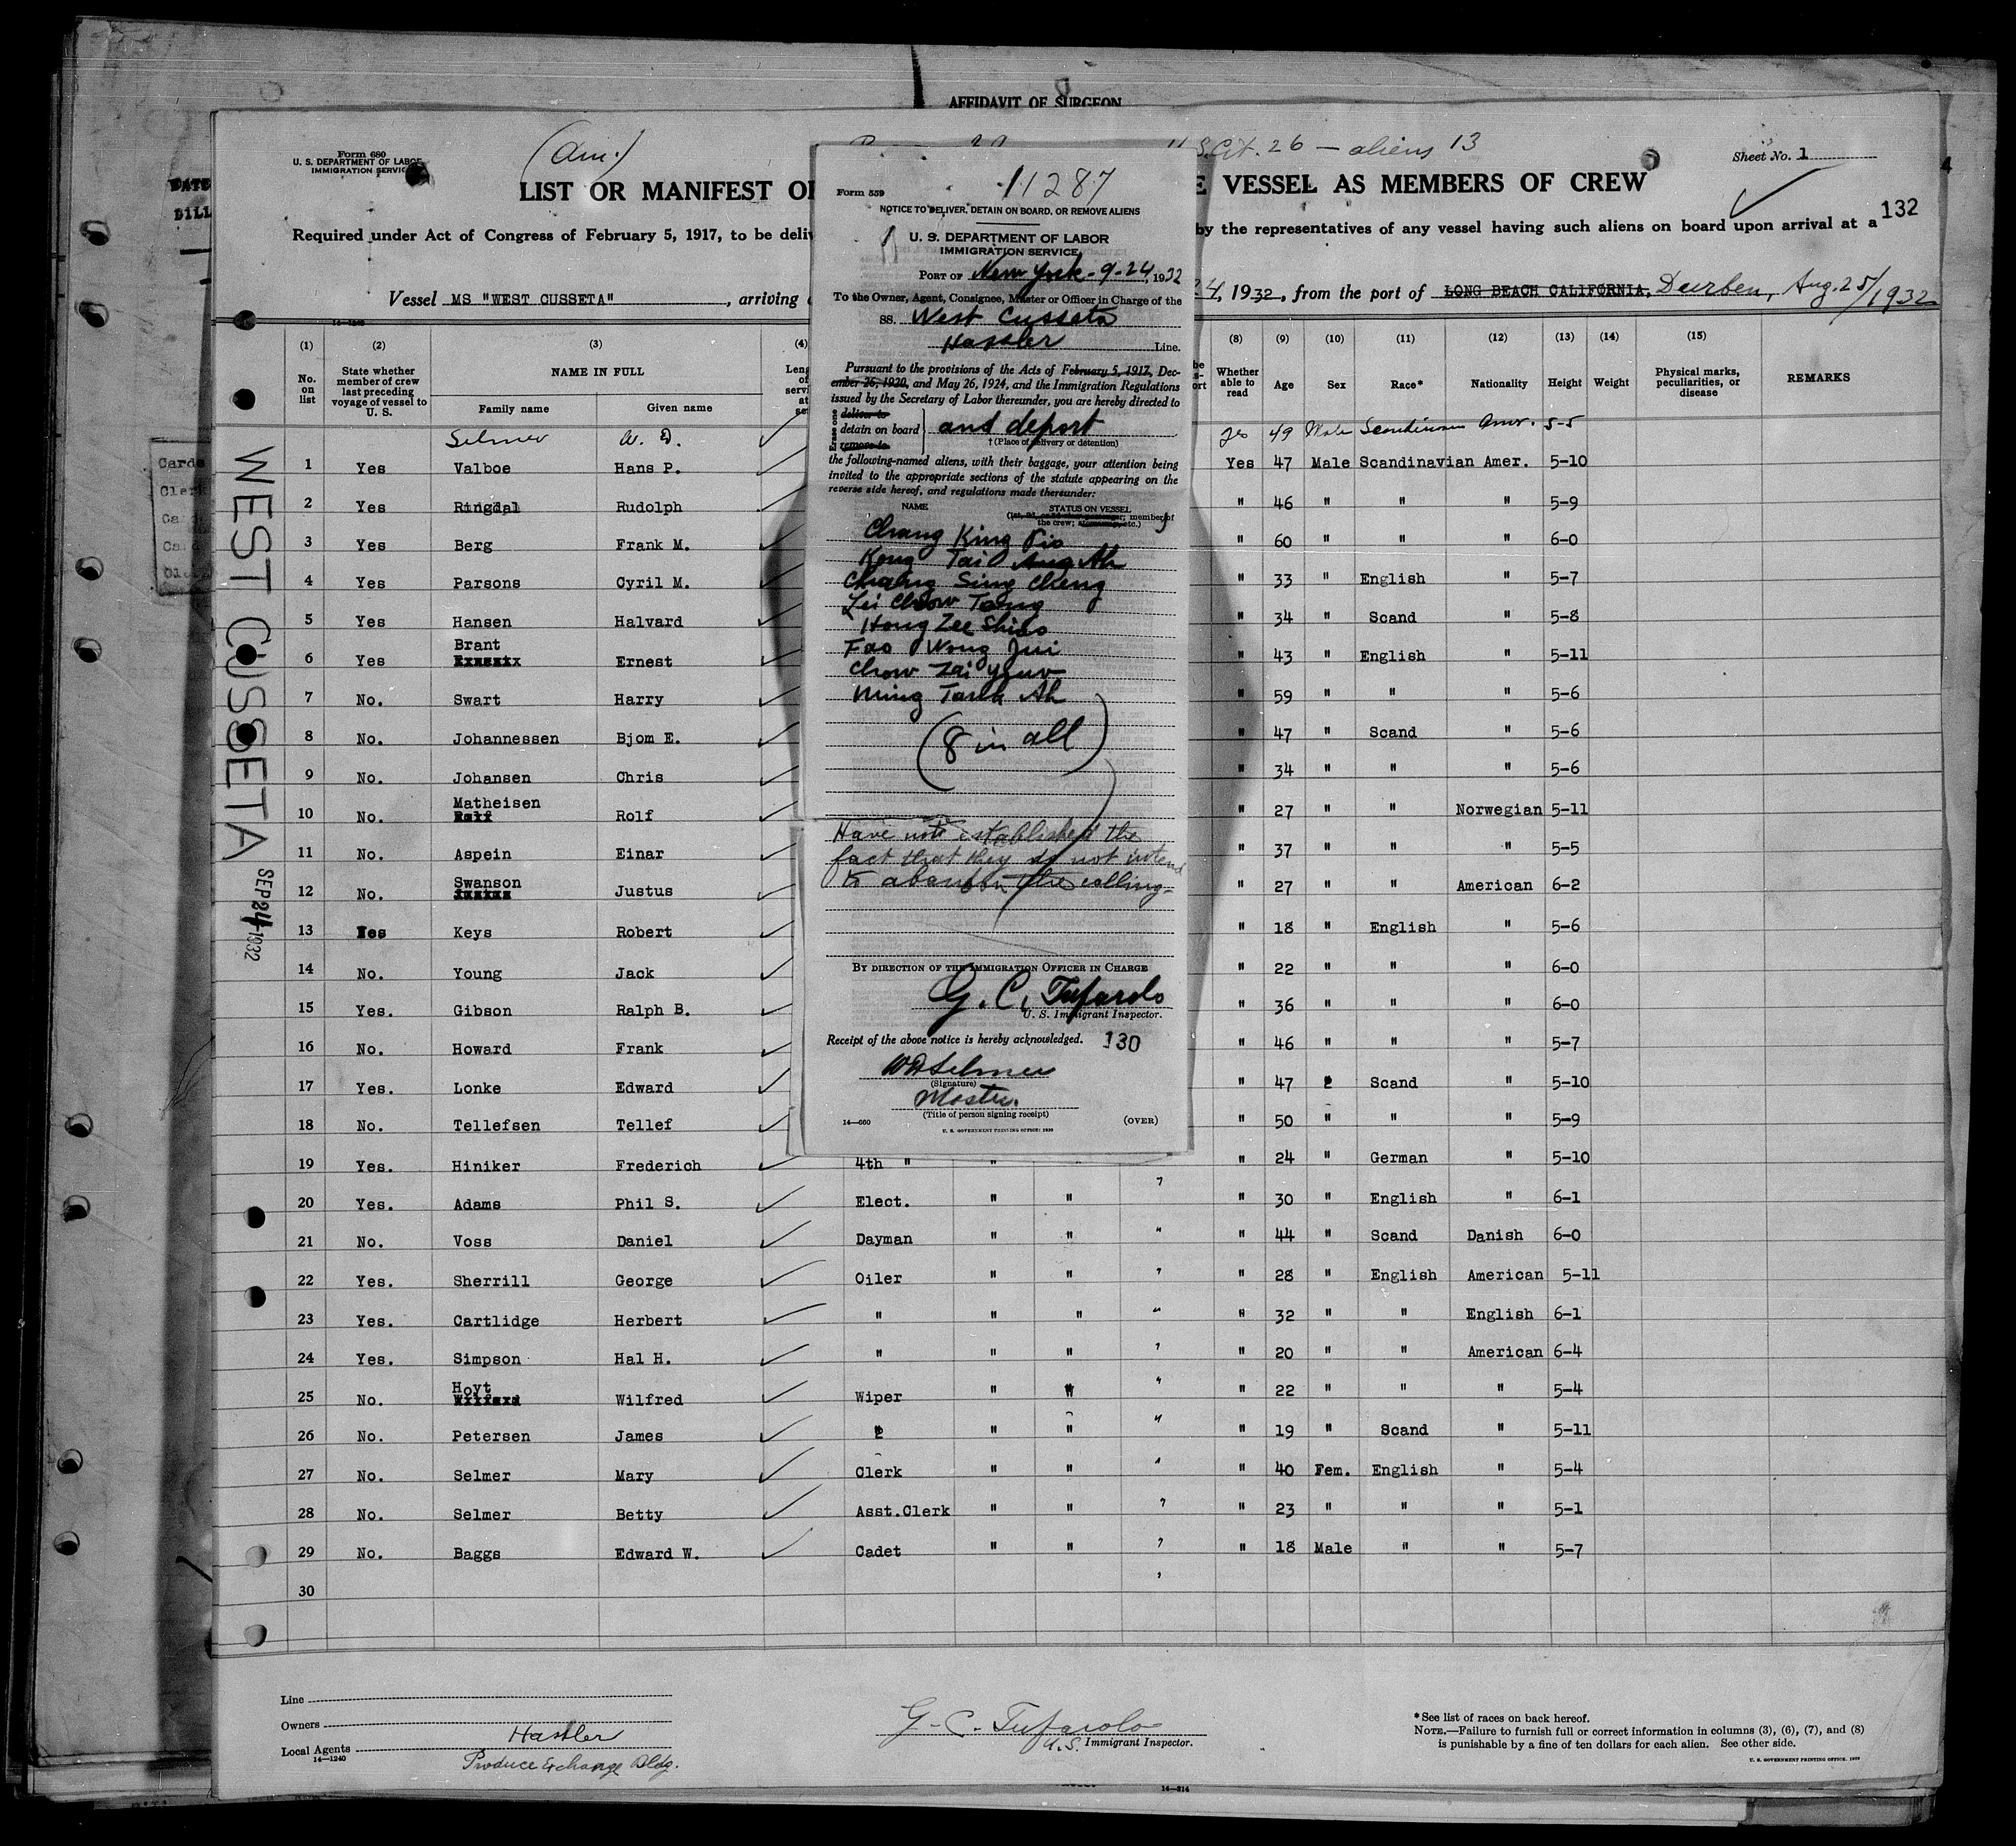 AFFIDAVIT OF SURGEON
Form 680
U. S. DEPARTMENT OF LABOR
IMMIGRATION SERVICE
(Am.)
U.S. Cit. 26 — aliens 13
Sheet No. 1
LIST OR MANIFEST OF
E VESSEL AS MEMBERS OF CREW
132
Required under Act of Congress of February 5, 1917, to be deliv
by the representatives of any vessel having such aliens on board upon arrival at a
Vessel MS "WEST CUSSETA", arriving
24, 1932, from the port of LONG BEACH CALIFORNIA, Durben, Aug. 25/1932
14-1240
(1) (2) (3) (4) (8) (9) (10) (11) (12) (13) (14) (15)
No. on list
State whether member of crew last preceding voyage of vessel to U. S.
NAME IN FULL
Family name Given name
Whether able to read
Age Sex Race* Nationality Height Weight
Physical marks, peculiarities, or disease
REMARKS
Selmer W. D. yes 49 Male Scandinavian Amer. 5-5
1 Yes Valboe Hans P. Yes 47 Male Scandinavian Amer. 5-10
2 Yes Ringdal Rudolph " 46 " " " 5-9
3 Yes Berg Frank M. " 60 " " " 6-0
4 Yes Parsons Cyril M. " 33 " English " 5-7
5 Yes Hansen Halvard " 34 " Scand " 5-8
6 Yes Brant Ernest " 43 " English " 5-11
7 No. Swart Harry " 59 " " " 5-6
8 No. Johannessen Bjom E. " 47 " Scand " 5-6
9 No. Johansen Chris " 34 " " " 5-6
10 No. Matheisen Rolf " 27 " " Norwegian 5-11
11 No. Aspein Einar " 37 " " " 5-5
12 No. Swanson Justus " 27 " " American 6-2
13 Yes Keys Robert " 18 " English " 5-6
14 No. Young Jack " 22 " " " 6-0
15 Yes. Gibson Ralph B. " 36 " " " 6-0
16 No. Howard Frank " 46 " " " 5-7
17 Yes. Lonke Edward " 47 " Scand " 5-10
18 No. Tellefsen Tellef " 50 " " " 5-9
19 Yes. Hiniker Frederich 4th " " " " 24 " German " 5-10
20 Yes. Adams Phil S. Elect. " " " " 30 " English " 6-1
21 No. Voss Daniel Dayman " " " " 44 " Scand Danish 6-0
22 Yes. Sherrill George Oiler " " " " 28 " English American 5-11
23 Yes. Cartlidge Herbert " " " " " 32 " " English 6-1
24 Yes. Simpson Hal H. " " " " " 20 " " American 6-4
25 No. Hoyt Wilfred Wiper " " " " 22 " " " 5-4
26 No. Petersen James " " " " " 19 " Scand " 5-11
27 No. Selmer Mary Clerk " " " " 40 Fem. English " 5-4
28 No. Selmer Betty Asst.Clerk " " " " 23 " " " 5-1
29 No. Baggs Edward W. Cadet " " " " 18 Male " " 5-7
30
WEST CUSSETA
SEP 24 1932
Form 559
11287
NOTICE TO DELIVER, DETAIN ON BOARD, OR REMOVE ALIENS
U. S. DEPARTMENT OF LABOR
IMMIGRATION SERVICE
PORT OF New York - 9-24, 1932
To the Owner, Agent, Consignee, Master or Officer in Charge of the
SS. West Cusseta
Hassler Line.
Pursuant to the provisions of the Acts of February 5, 1917, Dec-
ember 26, 1920, and May 26, 1924, and the Immigration Regulations
issued by the Secretary of Labor thereunder, you are hereby directed to
Erase one
deliver to
detain on board and deport
remove to
† (Place of delivery or detention)
the following-named aliens, with their baggage, your attention being
invited to the appropriate sections of the statute appearing on the
reverse side hereof, and regulations made thereunder:
NAME STATUS ON VESSEL
member of
the crew; etc.)
Chang King Fio
Kong Tai Ah
Chang Sing Cheng
Lei Chow Tong
Hong Zee Shiao
Fao Wong Jui
Chow Zai
Ming Ah
(8 in all)
Have not established the
fact that they do not intend
to abandon the calling-
BY DIRECTION OF THE IMMIGRATION OFFICER IN CHARGE
G. C. Tufarolo
U. S. Immigrant Inspector.
Receipt of the above notice is hereby acknowledged. 130
W D Selmer
(Signature)
Master.
(Title of person signing receipt)
14-660
U. S. GOVERNMENT PRINTING OFFICE: 1930
(OVER)
Line
Owners
Hassler
Local Agents
14-1240
Produce Exchange Bldg.
G. C. Tufarolo
U.S. Immigrant Inspector.
* See list of races on back hereof.
NOTE.—Failure to furnish full or correct information in columns (3), (6), (7), and (8)
is punishable by a fine of ten dollars for each alien. See other side.
14-214